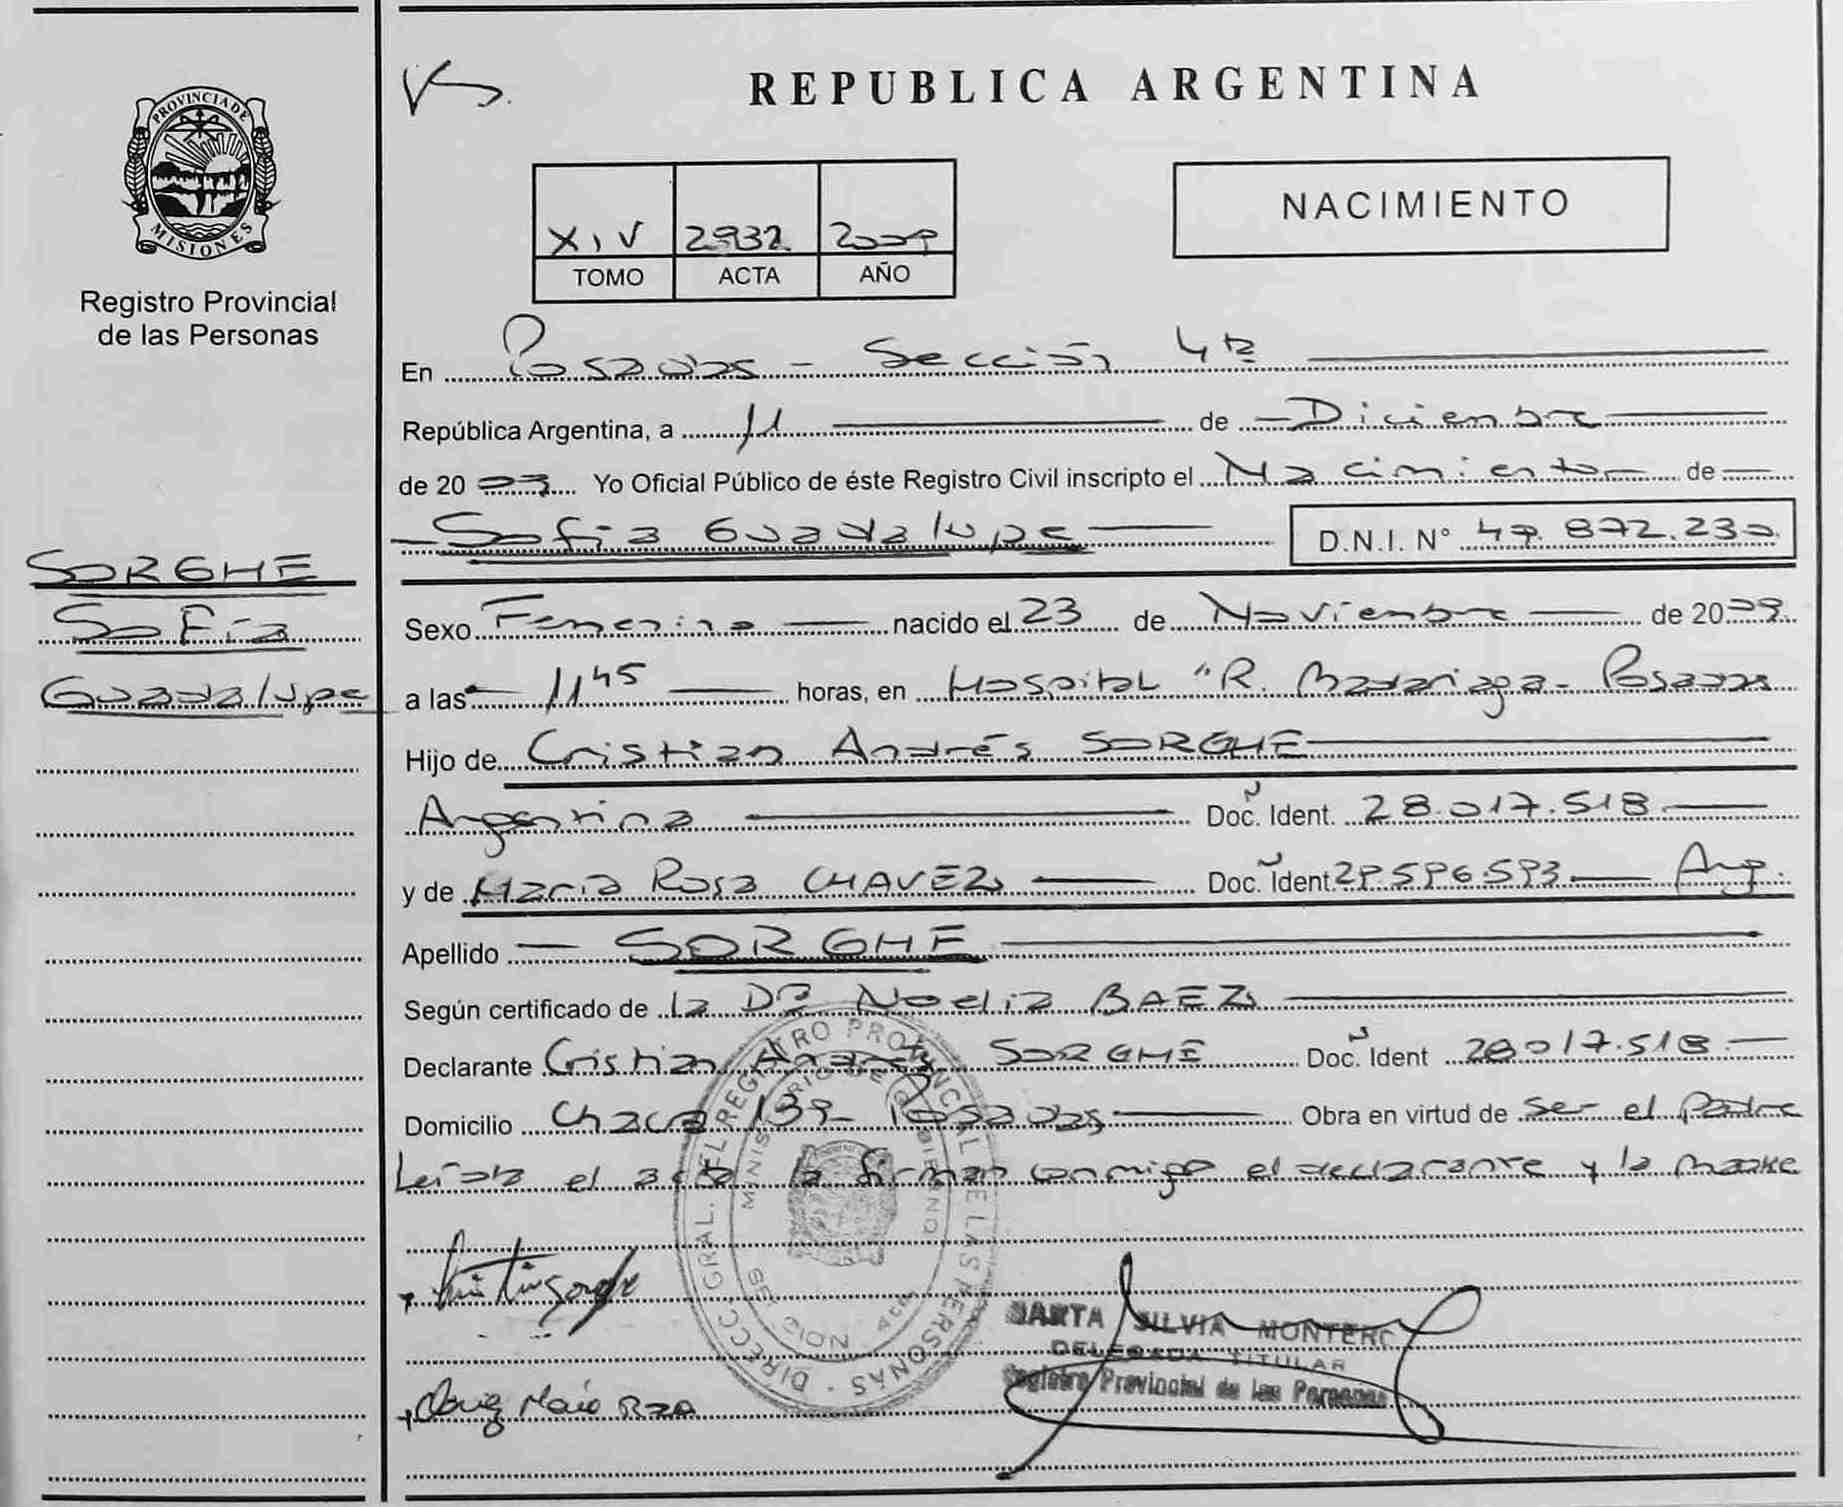 PROVINCIA DE
MISIONES
Registro Provincial
de las Personas
SORGHE
Sofía
Guadalupe
REPUBLICA ARGENTINA
XIV 2932 2009
TOMO ACTA AÑO
NACIMIENTO
En Posadas - Sección 4ta
República Argentina, a 11 de Diciembre
de 2009 Yo Oficial Público de éste Registro Civil inscripto el Nacimiento de
Sofía Guadalupe D.N.I. N° 49.872.230
Sexo Femenino nacido el 23 de Noviembre de 2009
a las 11 45 horas, en Hospital "R. Madariaga - Posadas
Hijo de Cristian Andrés SORGHE
Argentina Doc. Ident. 28.017.518
y de María Rosa CHAVEZ Doc. Ident. 29596593 Arg.
Apellido SORGHE
Según certificado de la Dra Noelia BAEZ
Declarante Cristian Andrés SORGHE Doc. Ident 28017.518
Domicilio Chacra 139 - Posadas Obra en virtud de ser el padre
Leída el acta la firman conmigo el declarante y la madre
DIRECC. GRAL. DEL REGISTRO PROVINCIAL DE LAS PERSONAS
MINISTERIO DE GOBIERNO
MISIONES
MARTA SILVIA MONTERO
DELEGADA TITULAR
Registro Provincial de las Personas
Chavez María Rosa